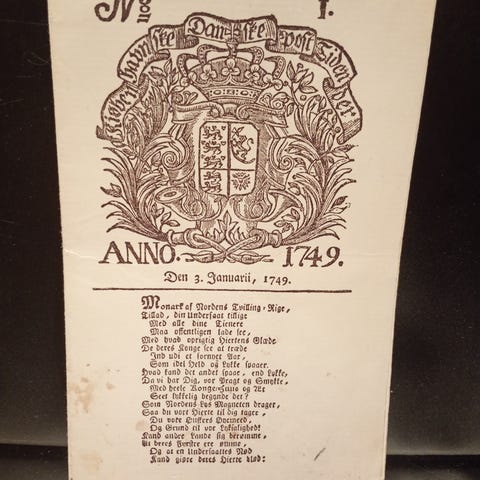 No. 1.
Kiøbenhavnske Danske Post Tidender
ANNO. 1749.
Den 3. Januarii, 1749.
Monark af Nordens Tvilling-Rige,
Tillad, din Undersaat tillige
Med alle dine Tienere
Maa offentligen lade see,
Med hvad oprigtig Hiertens Glæde
De deres Konge see at træde
Ind udi et fornyet Aar,
Som idel Held og Lykke spaaer.
Hvad kand det andet spaae, end Lykke,
Da vi har Dig, vor Pragt og Smykke,
Med heele Konge-Huus og Æt
Seet lykkelig begynde det?
Som Nordens-Lys Magneten drager,
Saa du vort Hierte til dig tager,
Du vore Ønskers Øyemeed,
Og Grund til vor Lyksalighed!
Kand andre Lande sig berømme,
At deres Førster ere ømme,
Og at en Undersaattes Nød
Kand giøre deres Hierte blød: